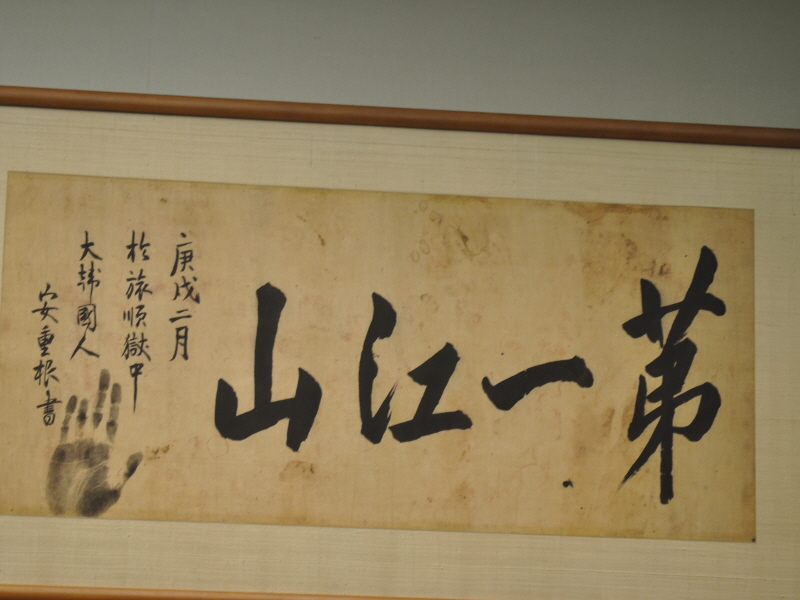 第一江山
庚戌二月
於旅順獄中
大韓國人
安重根書